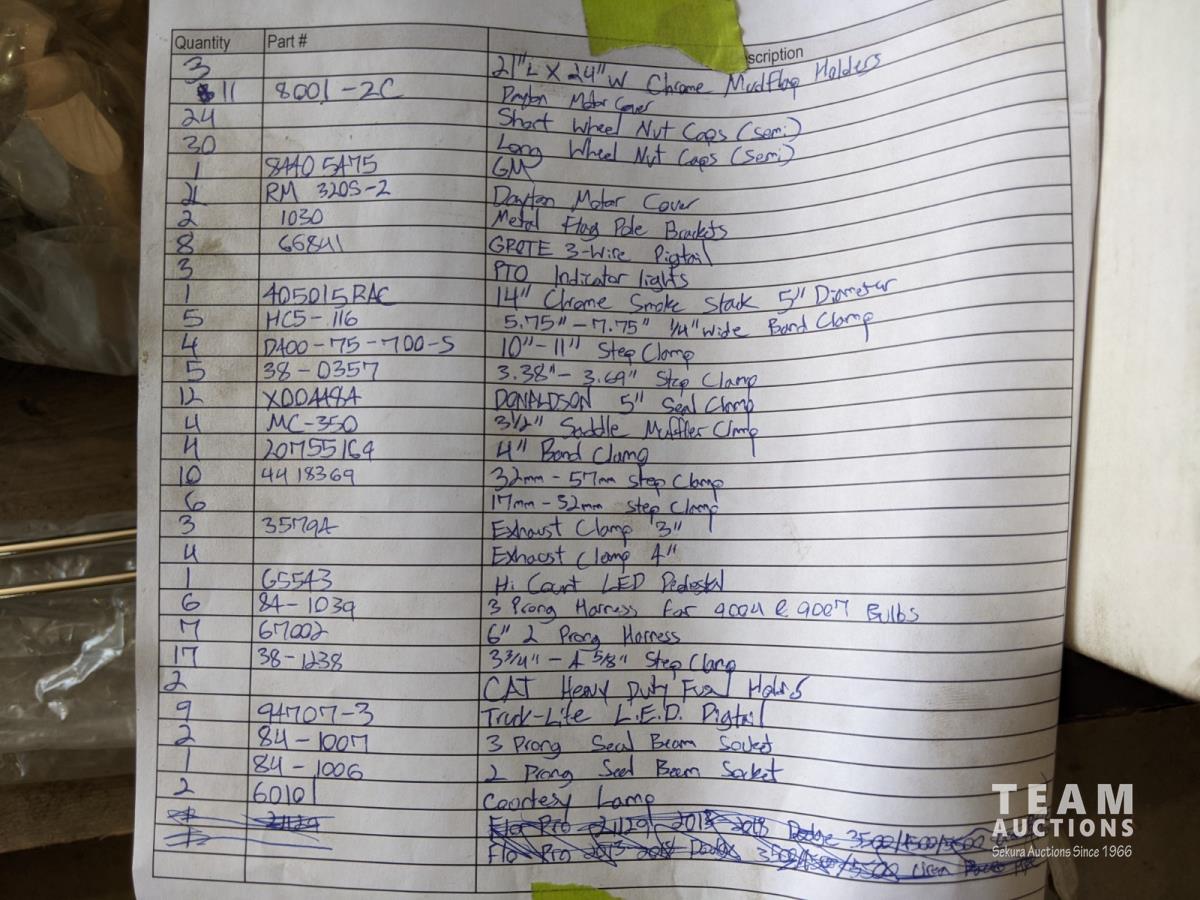 Quantity Part # scription
3 21"L X 24"W Chrome Mudflap Holders
11 8001-2C Dayton Motor Cover
24 Short Wheel Nut Caps (semi)
30 Long Wheel Nut Caps (semi)
1 84405475 GM
21 RM 320S-2 Dayton Motor Cover
2 1030 Metal Flag Pole Brackets
8 66841 GROTE 3-Wire Pigtail
3 PTO Indicator lights
1 405015RAC 14" Chrome Smoke Stack 5" Diameter
5 HC5-116 5.75"-7.75" 1/4" Wide Band Clamp
4 D400-75-700-S 10"-11" Step Clamp
5 38-0357 3.38"-3.69" Step Clamp
12 X004484 DONALDSON 5" Seal Clamp
4 MC-350 3 1/2" Saddle Muffler Clmp
4 20755164 4" Band Clamp
10 4418369 32mm-57mm Step Clamp
6 17mm-52mm Step Clamp
3 3579A Exhaust Clamp 3"
4 Exhaust Clamp 4"
1 65543 Hi Count LED Pedestal
6 84-1039 3 Prong Harness for 9004 & 9007 Bulbs
7 67002 6" 2 Prong Harness
17 38-1238 3 3/4"-4 5/8" Step Clamp
2 CAT Heavy Duty Fuel
9 94707-3 Truck-Lite L.E.D. Pigtail
2 84-1007 3 Prong Seal Beam Socket
1 84-1006 2 Prong Seal Beam Socket
2 60101 Courtesy Lamp
21129 Flo Pro 21129 2013 2018 Dodge 3500/4500/5500
Flo Pro 2013 2018 Dodge 3500/4500/5500
TEAM
AUCTIONS
Sekura Auctions Since 1966